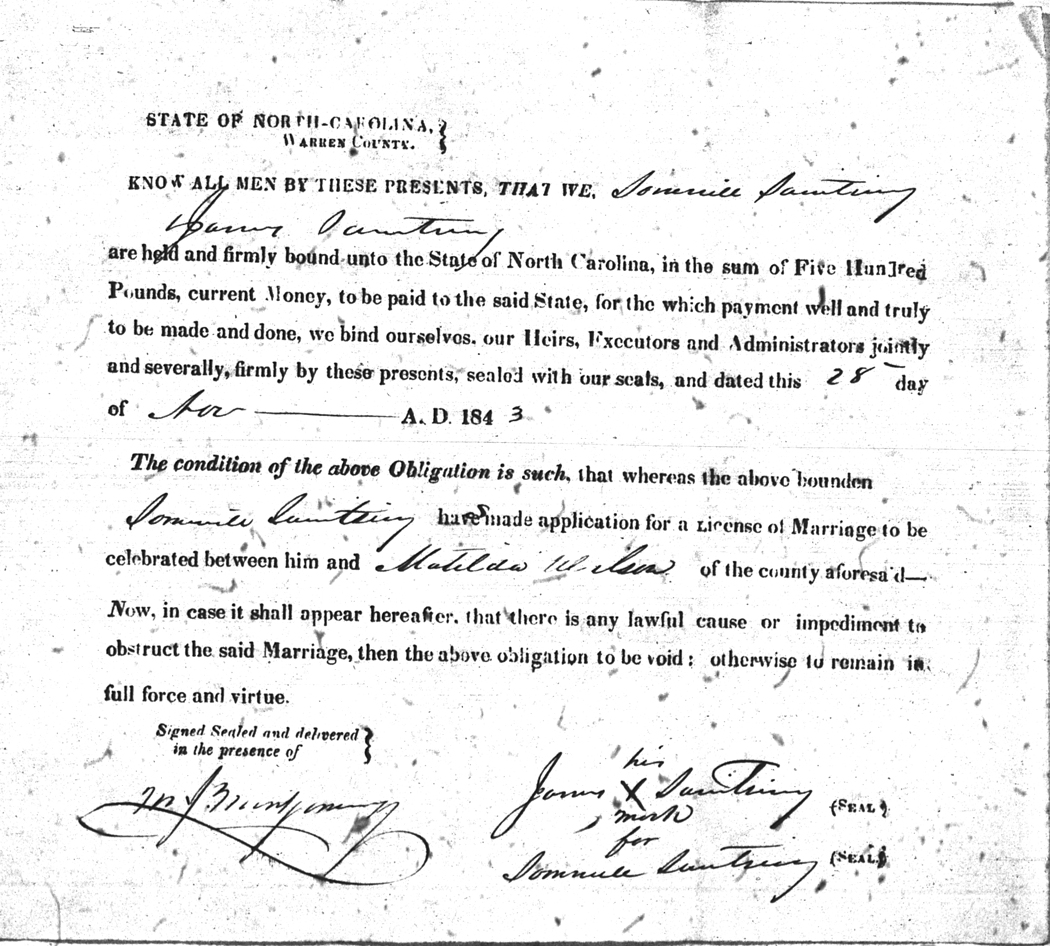 STATE OF NORTH-CAROLINA,
WARREN COUNTY.
KNOW ALL MEN BY THESE PRESENTS, THAT WE,
James
are held and firmly bound unto the State of North Carolina, in the sum of Five Hundred
Pounds, current Money, to be paid to the said State, for the which payment well and truly
to be made and done, we bind ourselves, our Heirs, Executors and Administrators jointly
and severally, firmly by these presents, sealed with our seals, and dated this 28 day
of Nov A. D. 1843
The condition of the above Obligation is such, that whereas the above bounden
has made application for a License of Marriage to be
celebrated between him and Matilda Wilson of the county aforesa'd—
Now, in case it shall appear hereafter, that there is any lawful cause or impediment to
obstruct the said Marriage, then the above obligation to be void: otherwise to remain in
full force and virtue.
Signed Sealed and delivered
in the presence of
his
James X (SEAL)
mark
for
(SEAL)